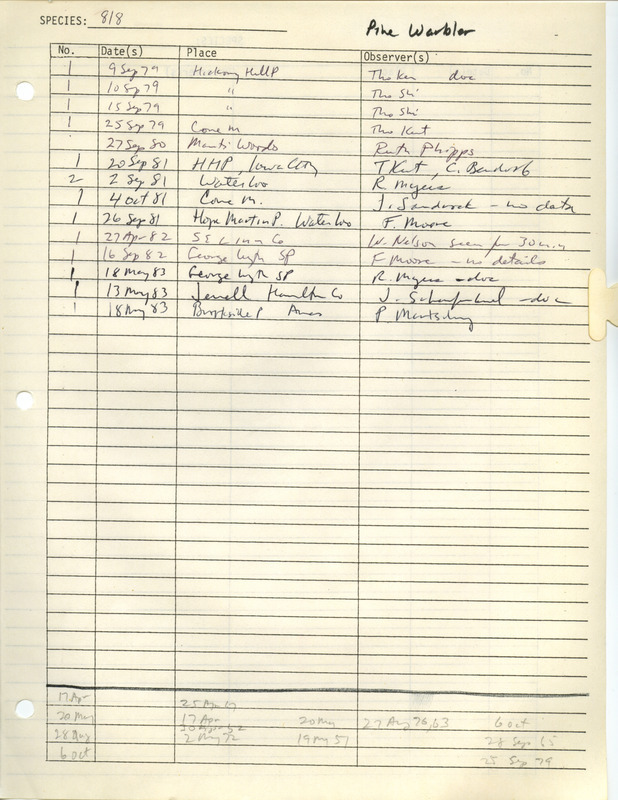 SPECIES: 818
Pine Warbler
No. Date(s) Place Observer(s)
1 9 Sep 79 Hickory Hill P doc
1 10 Sep 79 "
1 15 Sep 79 "
1 25 Sep 79 Cone M
27 Sep 80 Manti Woods Ruth Phipps
1 20 Sep 81 HHP, Iowa City T Kent, C. Bendorf
2 2 Sep 81 Waterloo R Myers
1 4 Oct 81 Cone M. J. Sandrock - no data
1 26 Sep 81 Hope Martin P. Waterloo F. Moore
1 27 Apr 82 SE Linn Co W. Nelson seen for 30 min
1 16 Sep 82 George Wyth SP F Moore - no details
1 18 May 83 George Wyth SP R. Myers - doc
1 13 May 83 Jewell Hamilton Co J. - doc
1 18 May 83 Brookside P Ames P
17 Apr 25 Apr
20 May 17 Apr 20 May 27 Aug 76, 63 6 Oct
28 Aug 2 May 72 19 May 51 28 Sep 65
6 Oct 25 Sep 79